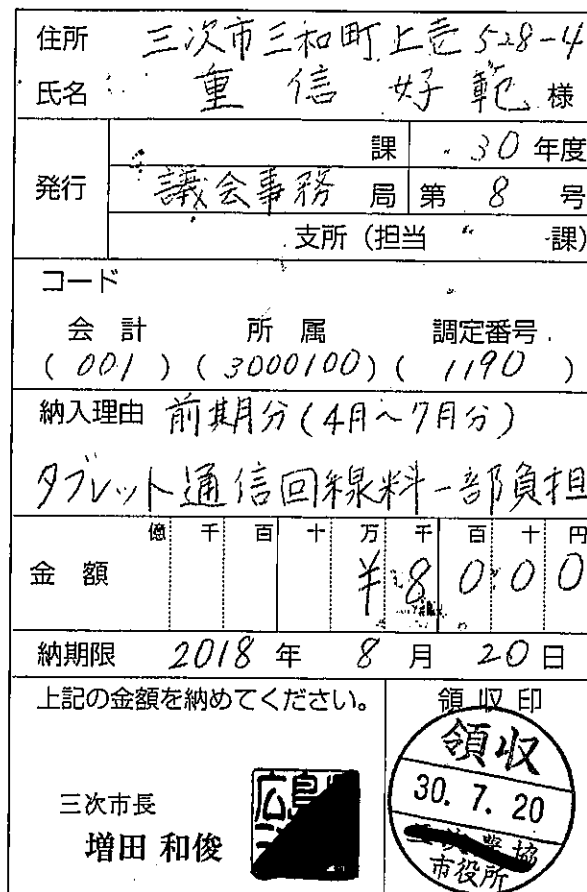 住所 三次市三和町上壱528-4
氏名 重信好範 様
課 30年度
発行 議会事務局 第 8 号
支所(担当 〃 課)
コード
会計 所属 調定番号
(001)(3000100)(1190)
納入理由 前期分(4月～7月分)
タブレット通信回線料一部負担
億 千 百 十 万 千 百 十 円
金額 ¥8000
納期限 2018年 8月 20日
上記の金額を納めてください。
三次市長
増田 和俊
領収印
領収
30.7.20
市役所